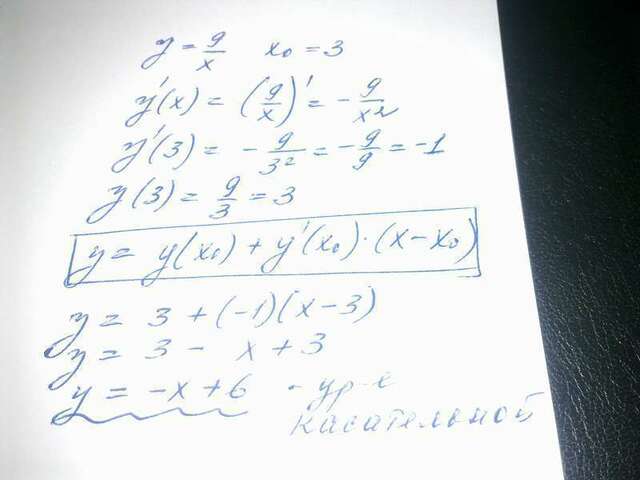 y = 9/x x₀ = 3
y'(x) = (9/x)' = - 9/x²
y'(3) = - 9/3² = - 9/9 = -1
y(3) = 9/3 = 3
y = y(x₀) + y'(x₀) · (x - x₀)
y = 3 + (-1)(x - 3)
y = 3 - x + 3
y = -x + 6 - ур-е
касательной